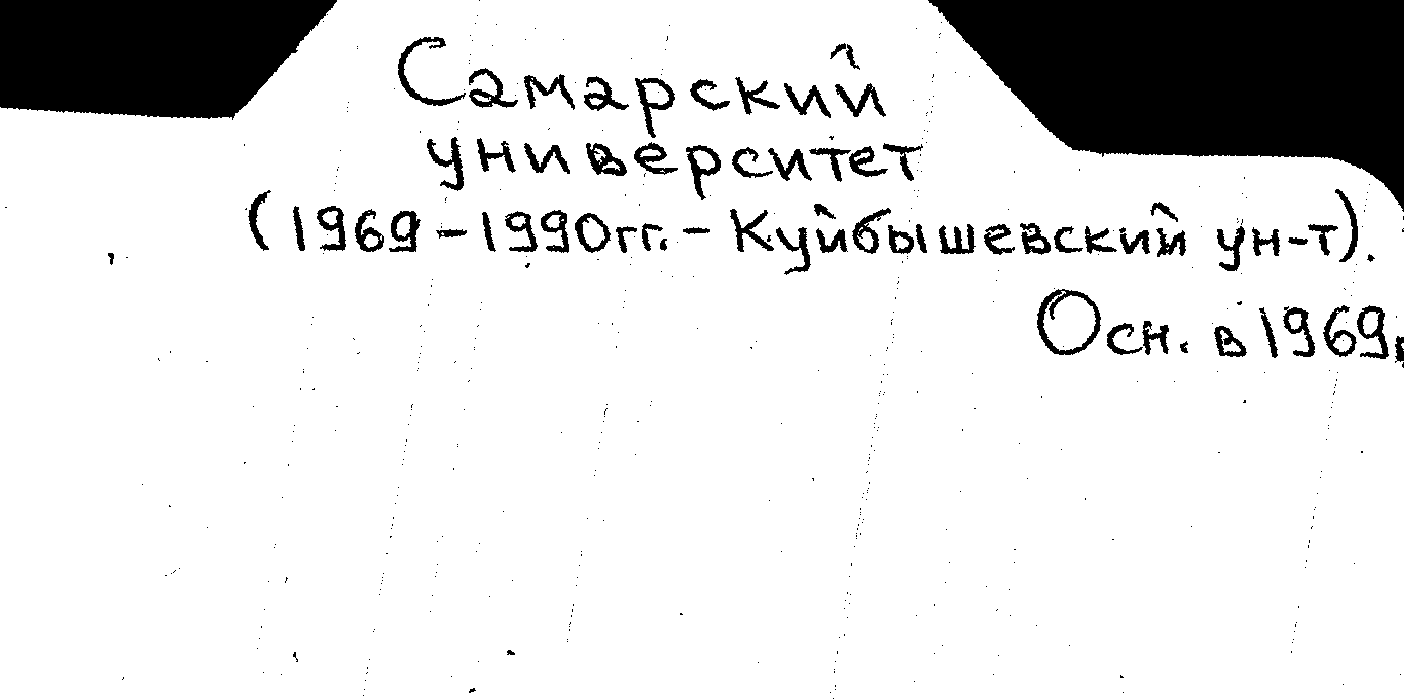 Самарский
университет
(1969-1990гг. - Куйбышевский ун-т).
Осн. в 1969г